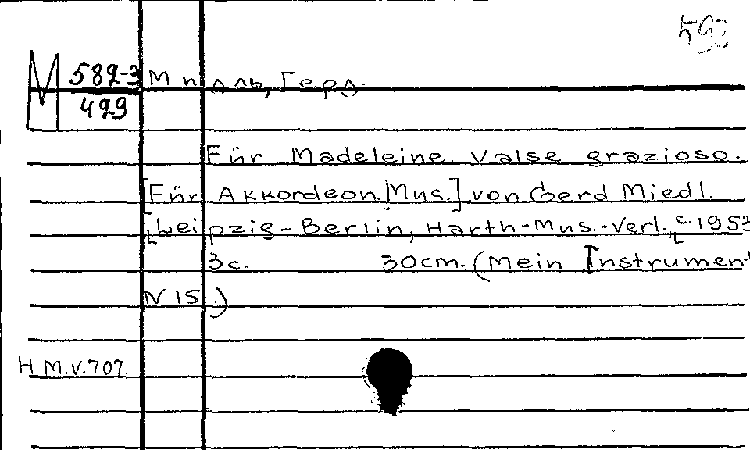 М 582-3
499
Мидль, Герд.
Für Madeleine. Valse grazioso.
[Für Akkordeon. Mus.] von Gerd Miedl.
[Leipzig-Berlin, Harth-Mus.-Verl., c. 1953
3с. 30cm. (Mein Instrument
N 15.)
H.M.V.707